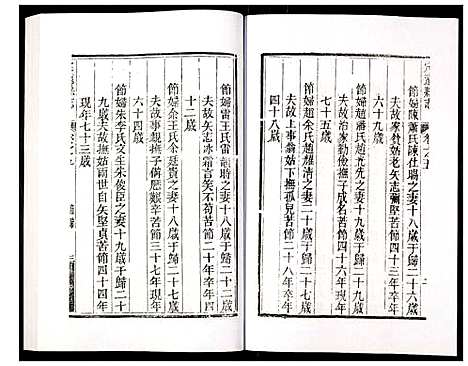 節婦陳蕭氏陳仕瑞之妻十八歲于歸二十六歲
夫故家貧姑老矢志彌堅苦節四十三年卒年
六十九歲
節婦趙潘氏趙光先之妻十八歲于歸二十九歲
夫故冶家勤儉撫子成名苦節四十六年卒年
七十五歲
節婦趙余氏趙耀清之妻十八歲于歸二十歲
夫故上事翁姑下撫孤兒苦節二十八年卒年
四十八歲
節婦雷王氏雷 聘之妻十八歲于歸二十二歲
夫故矢 冰霜言笑不苟苦節二十年卒年四
十二歲
節婦余王氏余廷貴之妻十八歲于歸二十七歲
夫故事親撫子備歷艱辛苦節三十七年現年
六十四歲
節婦朱李氏文生朱俊臣之妻十九歲于歸二十
九歲夫故撫姑兩世自矢堅貞苦節四十四年
現年七十三歲